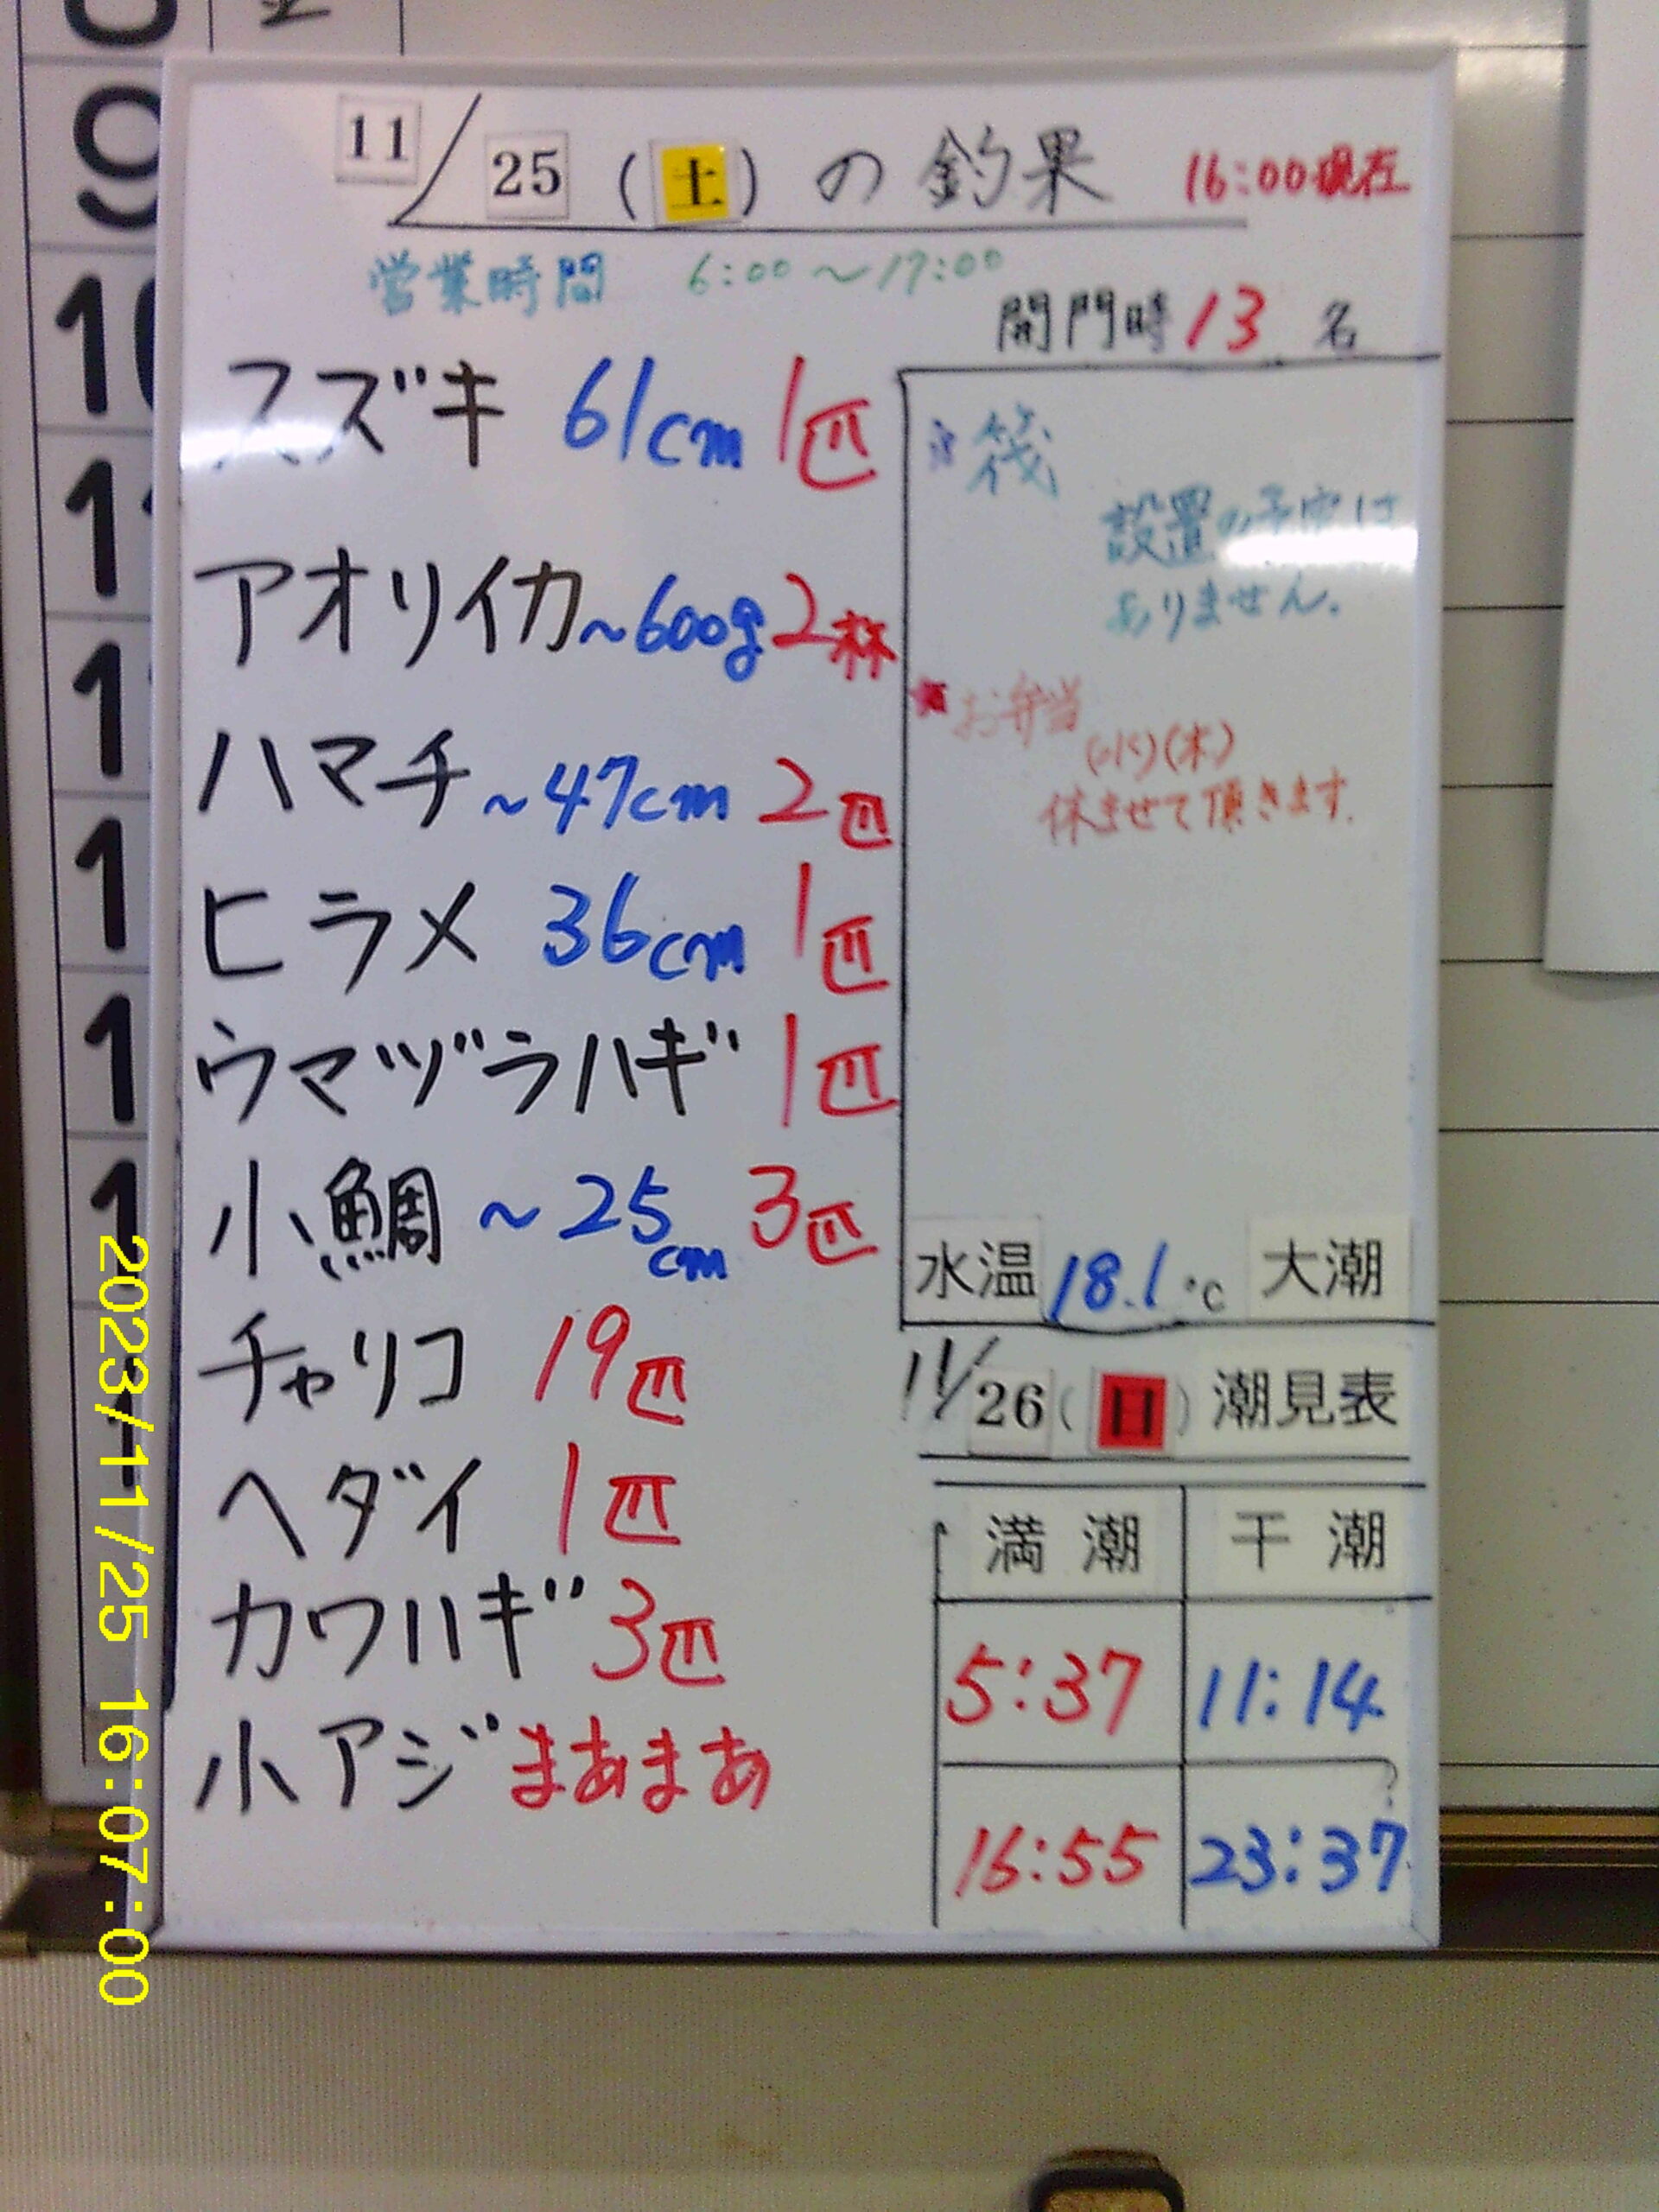 11/25(土)の釣果 16:00現在
営業時間 6:00～17:00
開門時13名
スズキ 61cm 1匹
アオリイカ～600g 2杯
ハマチ～47cm 2匹
ヒラメ 36cm 1匹
ウマヅラハギ 1匹
小鯛～25cm 3匹
チャリコ 19匹
ヘダイ 1匹
カワハギ 3匹
小アジ まあまあ
筏
設置の予定は
ありません.
お弁当
(水)(木)
休ませて頂きます.
水温 18.1℃ 大潮
11/26(日)潮見表
満潮 干潮
5:37 11:14
16:55 23:37
2023/11/25 16:07:00
9